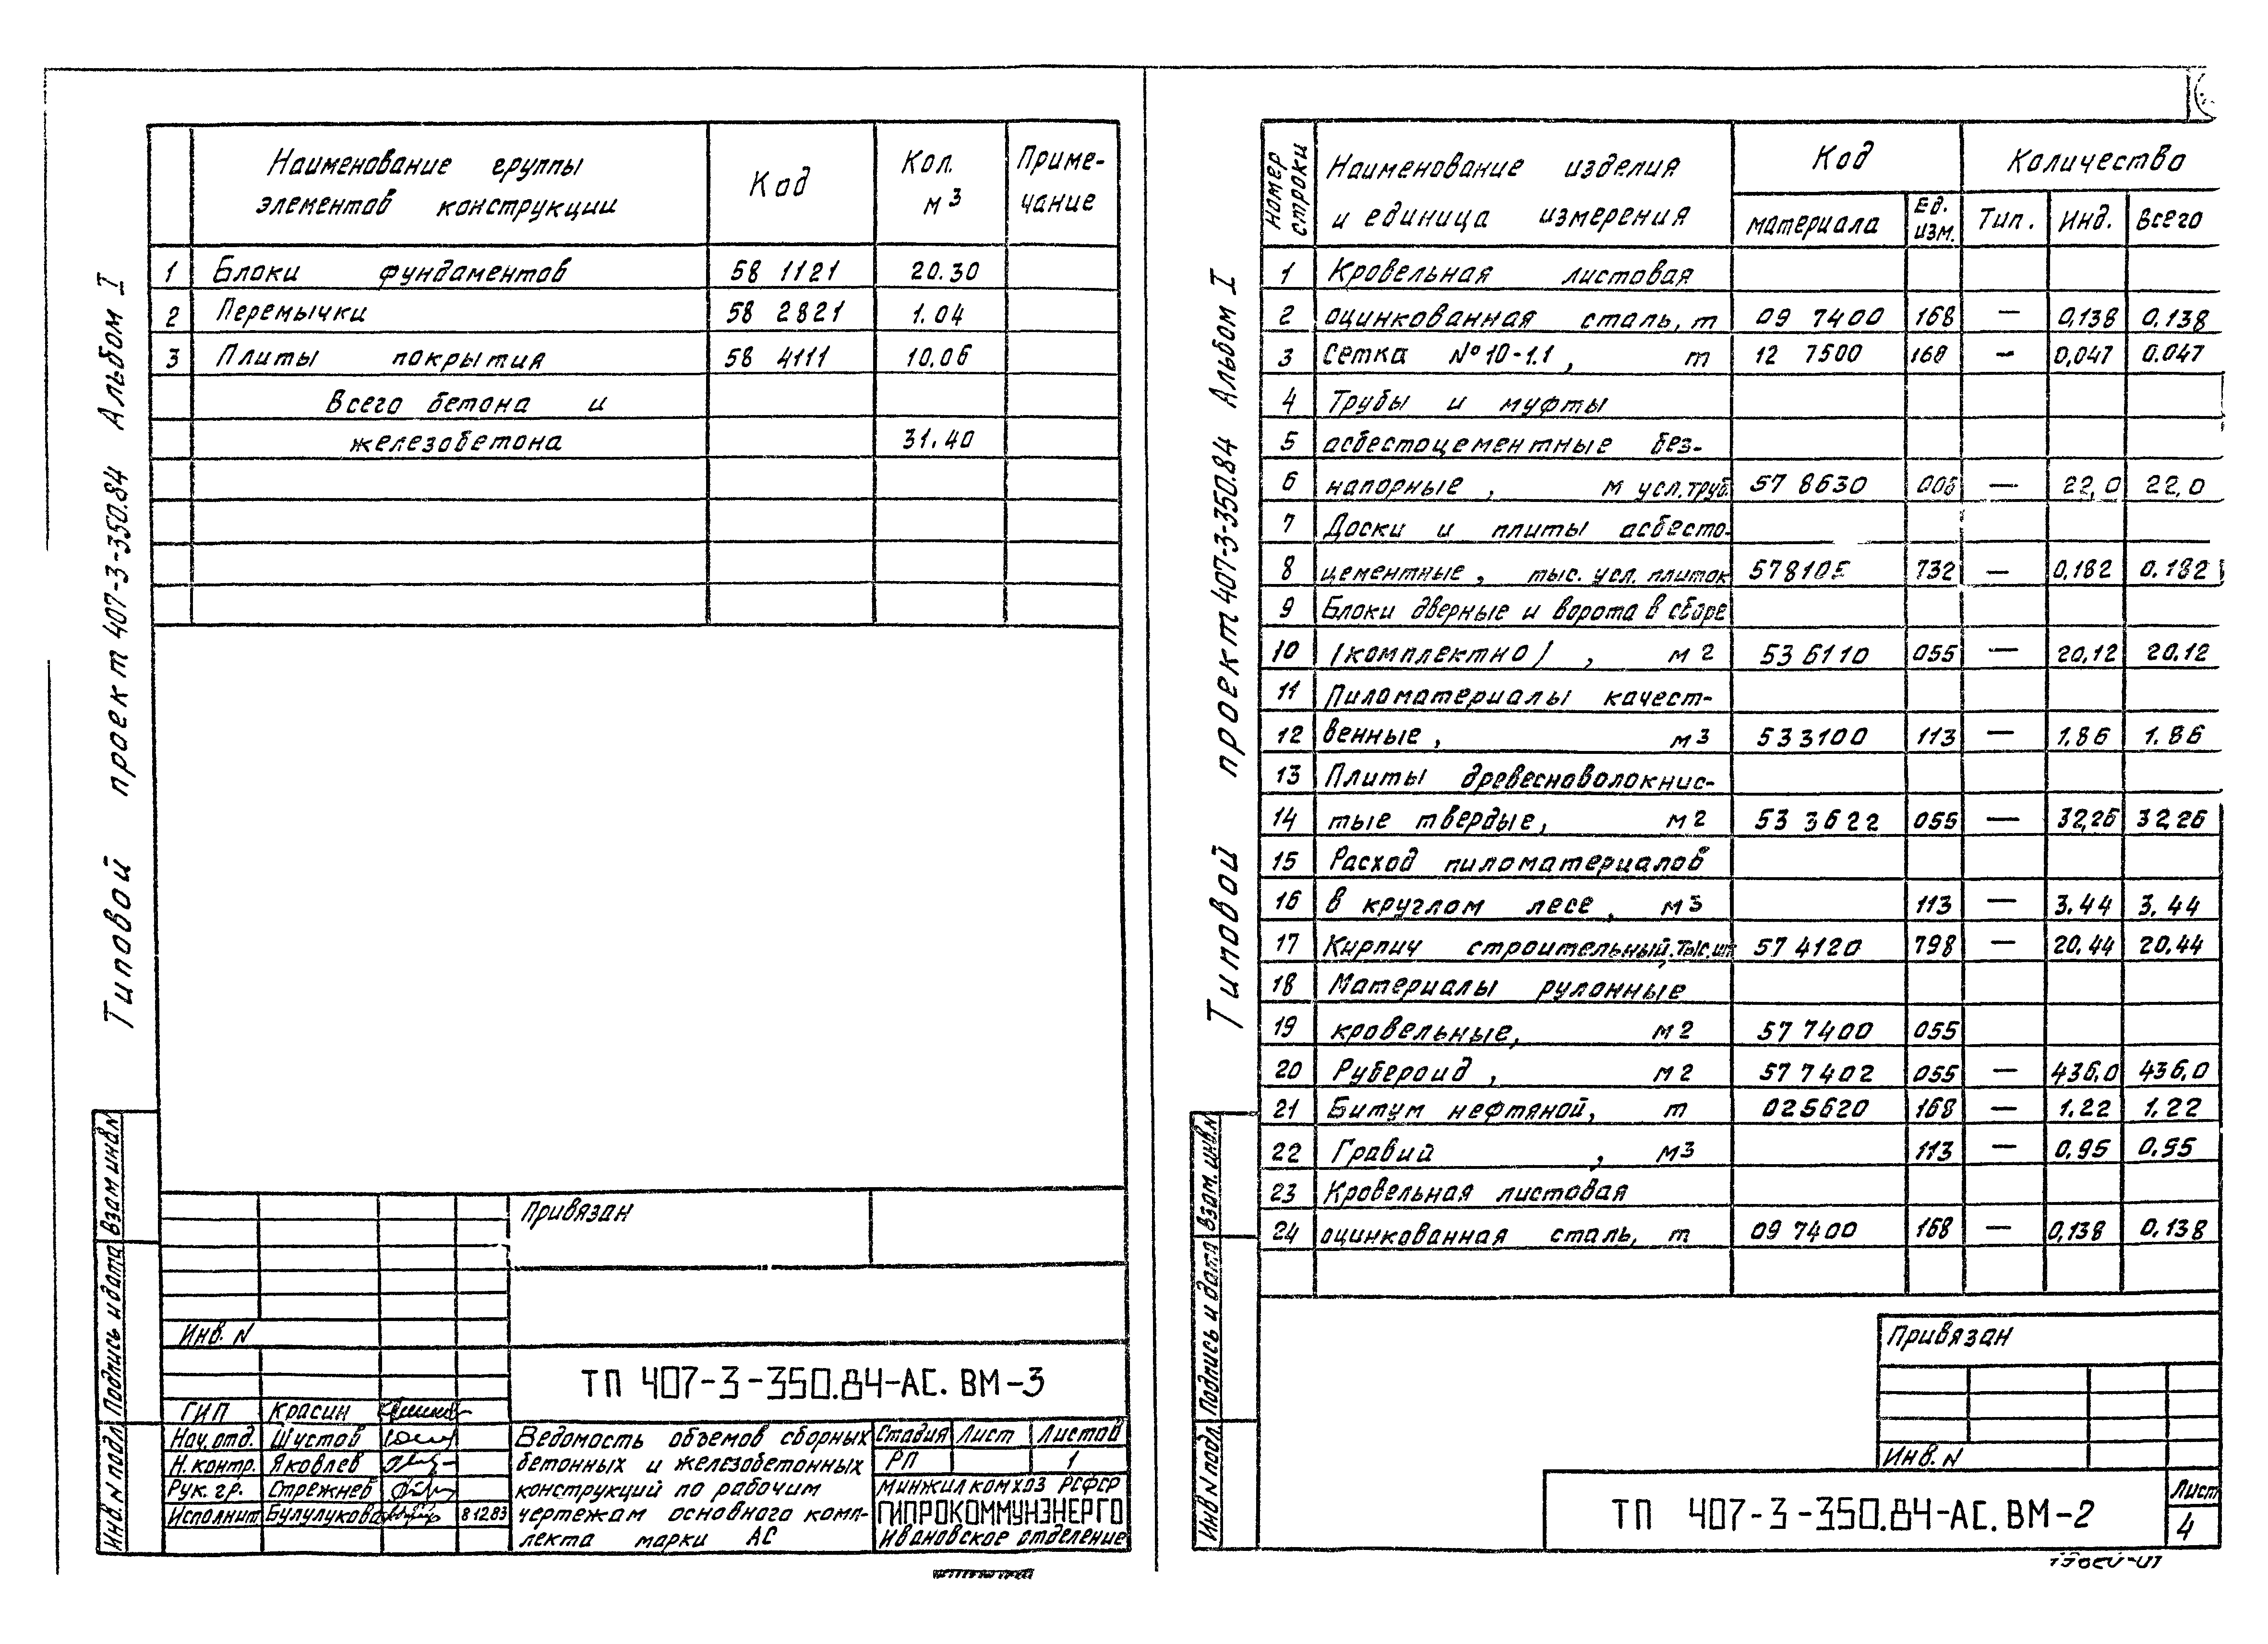 Типовой проект 407-3-350.84 Альбом I
Наименование группы элементов конструкции | Код | Кол. м3 | Приме-чание
1 Блоки фундаментов 58 1121 20.30
2 Перемычки 58 2821 1.04
3 Плиты покрытия 58 4111 10.06
Всего бетона и
железобетона 31.40
Привязан
Инв. N
ТП 407-3-350.84-АС. ВМ-3
ГИП Красин
Нач. отд. Шустов
Н. контр. Яковлев
Рук. гр. Стрежнев
Исполнит. Булулукова 8 12.83
Ведомость объемов сборных
бетонных и железобетонных
конструкций по рабочим
чертежам основного комп-
лекта марки АС
Стадия Лист Листов
РП 1
Минжилкомхоз РСФСР
ГИПРОКОММУНЭНЕРГО
Ивановское отделение
Взам инв. N
Подпись и дата
Инв. N подл.
Типовой проект 407-3-350.84 Альбом I
Номер строки | Наименование изделия и единица измерения | Код | Количество
материала | Ед. изм. | Тип. | Инд. | Всего
1 Кровельная листовая
2 оцинкованная сталь, т 09 7400 168 — 0,138 0.138
3 Сетка № 10-1.1, т 12 7500 168 — 0,047 0.047
4 Трубы и муфты
5 асбестоцементные без-
6 напорные, м усл. труб. 57 8630 006 — 22,0 22,0
7 Доски и плиты асбесто-
8 цементные, тыс. усл. плиток 578105 732 — 0,182 0.182
9 Блоки дверные и ворота в сборе
10 /комплектно/, м2 53 6110 055 — 20,12 20.12
11 Пиломатериалы качест-
12 венные, м3 533100 113 — 1.86 1.86
13 Плиты древесноволокнис-
14 тые твердые, м2 53 3622 055 — 32,26 32,26
15 Расход пиломатериалов
16 в круглом лесе, м3 113 — 3.44 3.44
17 Кирпич строительный, тыс. шт 57 4120 798 — 20.44 20,44
18 Материалы рулонные
19 кровельные, м2 57 7400 055
20 Рубероид, м2 57 7402 055 — 436,0 436,0
21 Битум нефтяной, т 025620 168 — 1.22 1.22
22 Гравий, м3 113 — 0,95 0.95
23 Кровельная листовая
24 оцинкованная сталь, т 09 7400 168 — 0,138 0.138
Привязан
Инв. N
ТП 407-3-350.84-АС. ВМ-2
Лист
4
Взам. инв. N
Подпись и дата
Инв N подл.